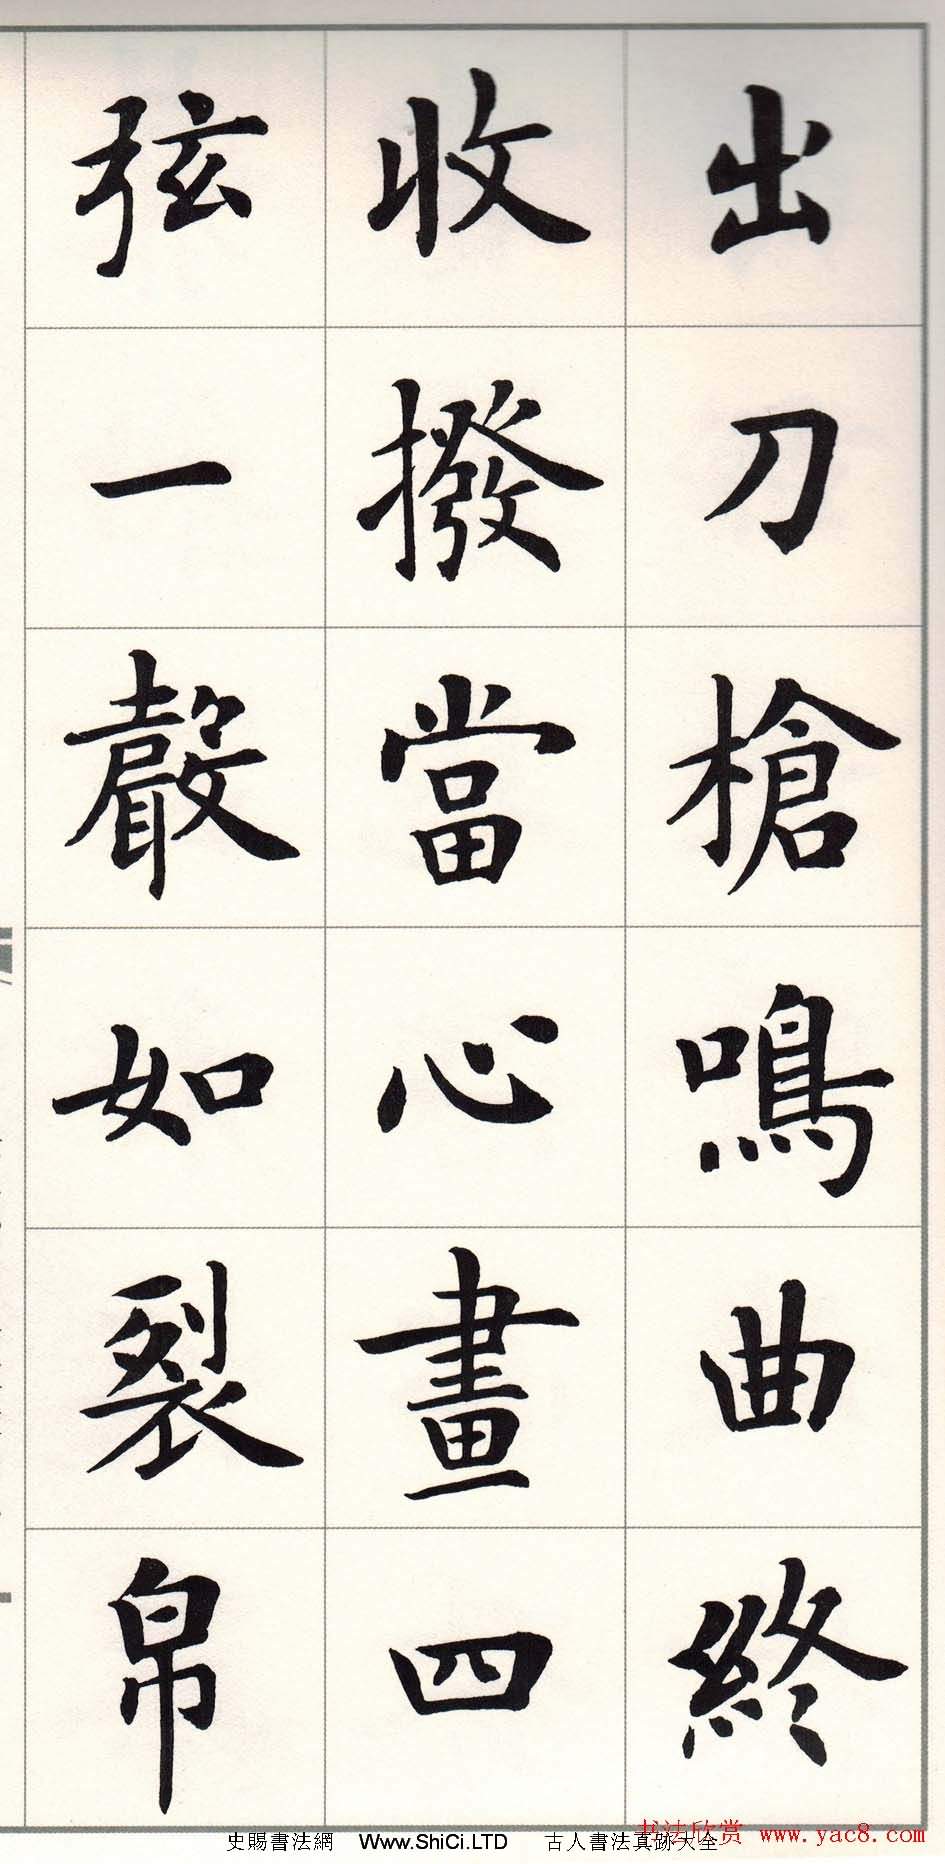 出刀槍鳴曲終
收撥當心畫四
弦一聲如裂帛
史賜書法網 Www.ShiCi.LTD 古人書法真跡大全
书法欣赏 www.yac8.com